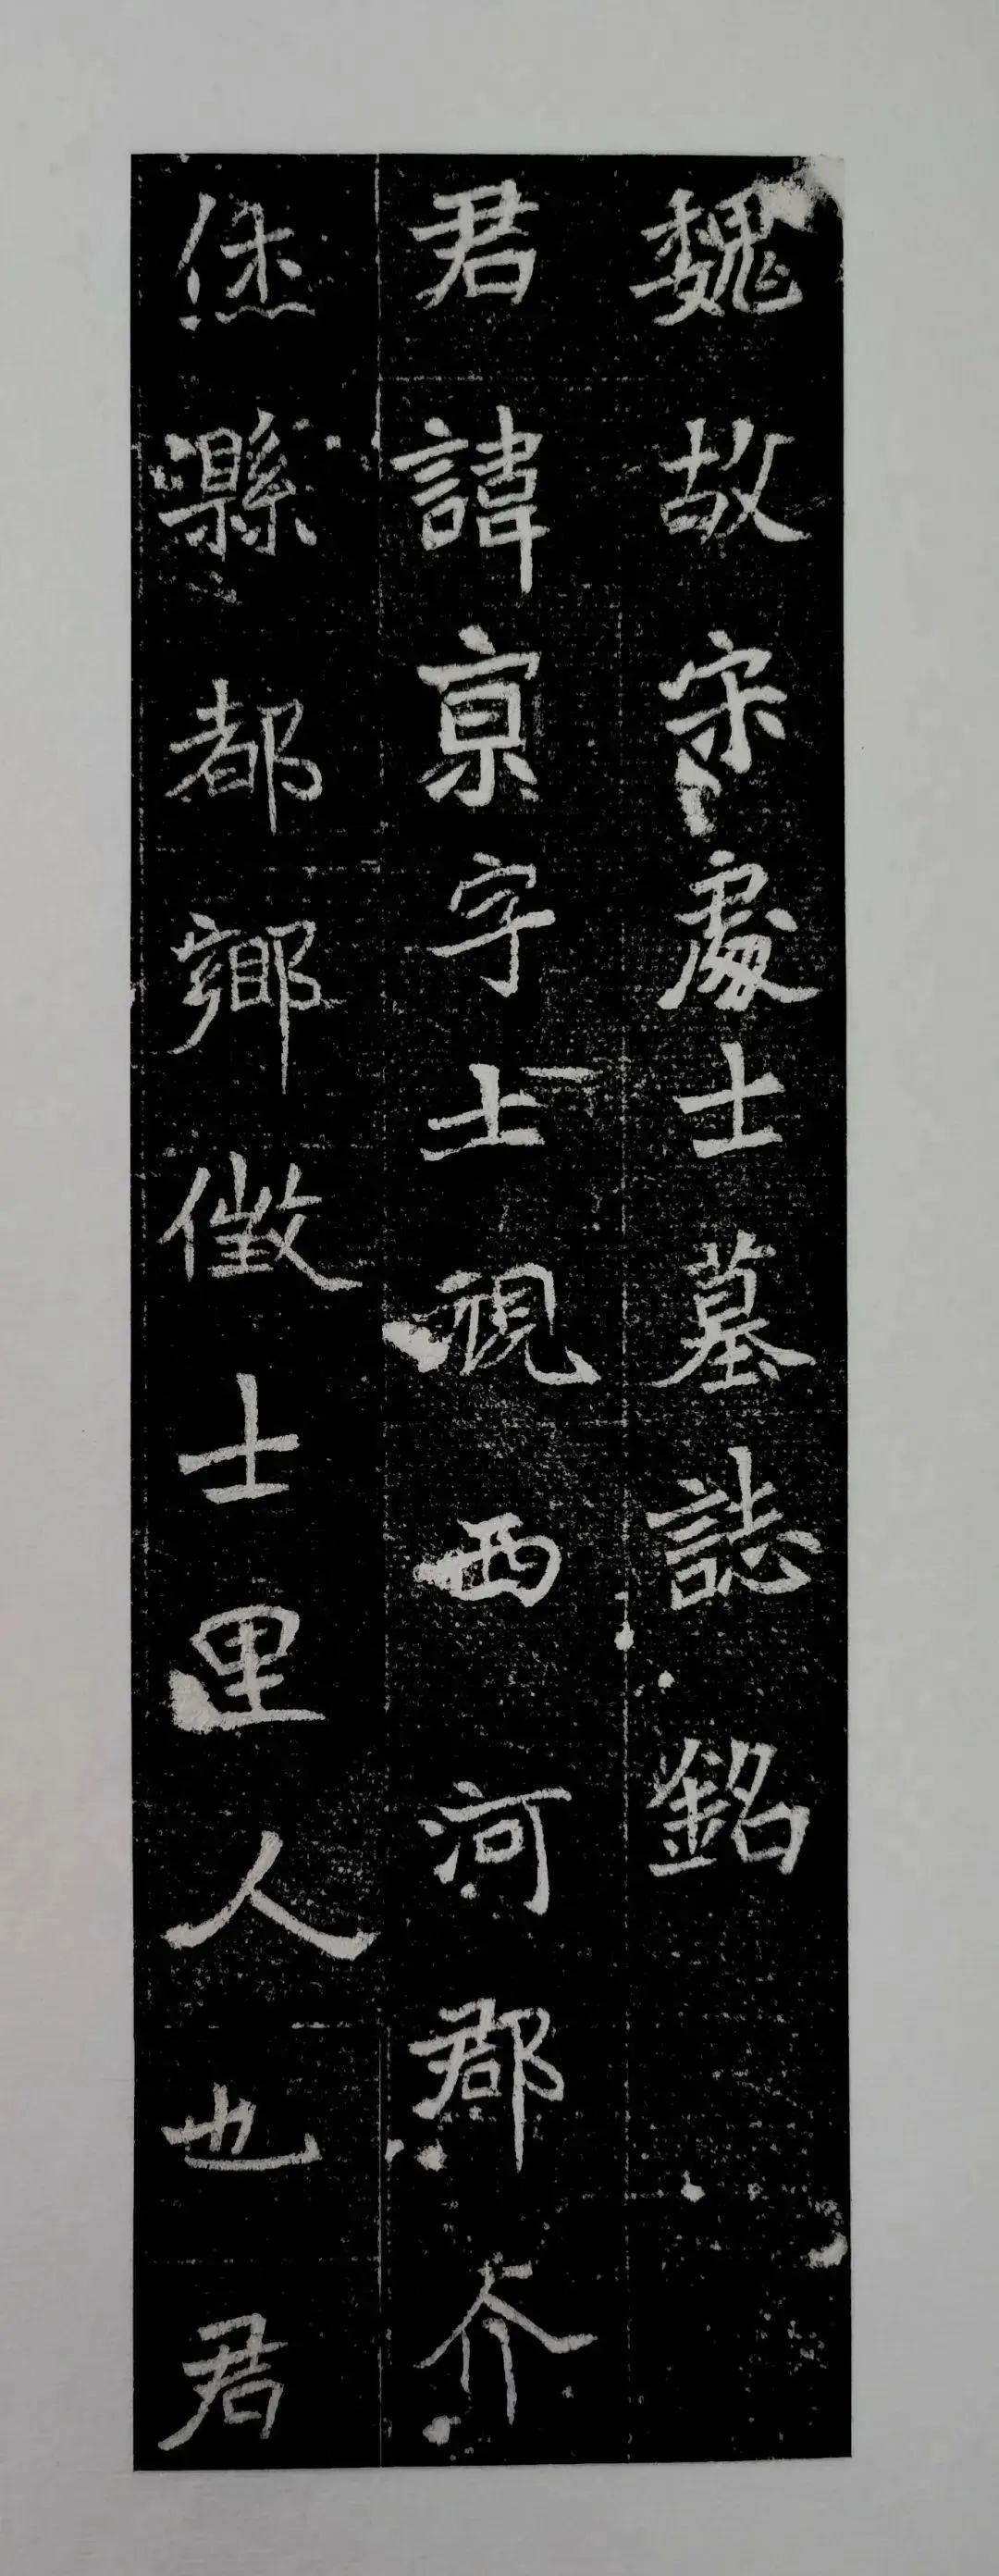 魏故宋處士墓誌銘
君諱亰字士視西河郡介
休縣都鄉徵士里人也君